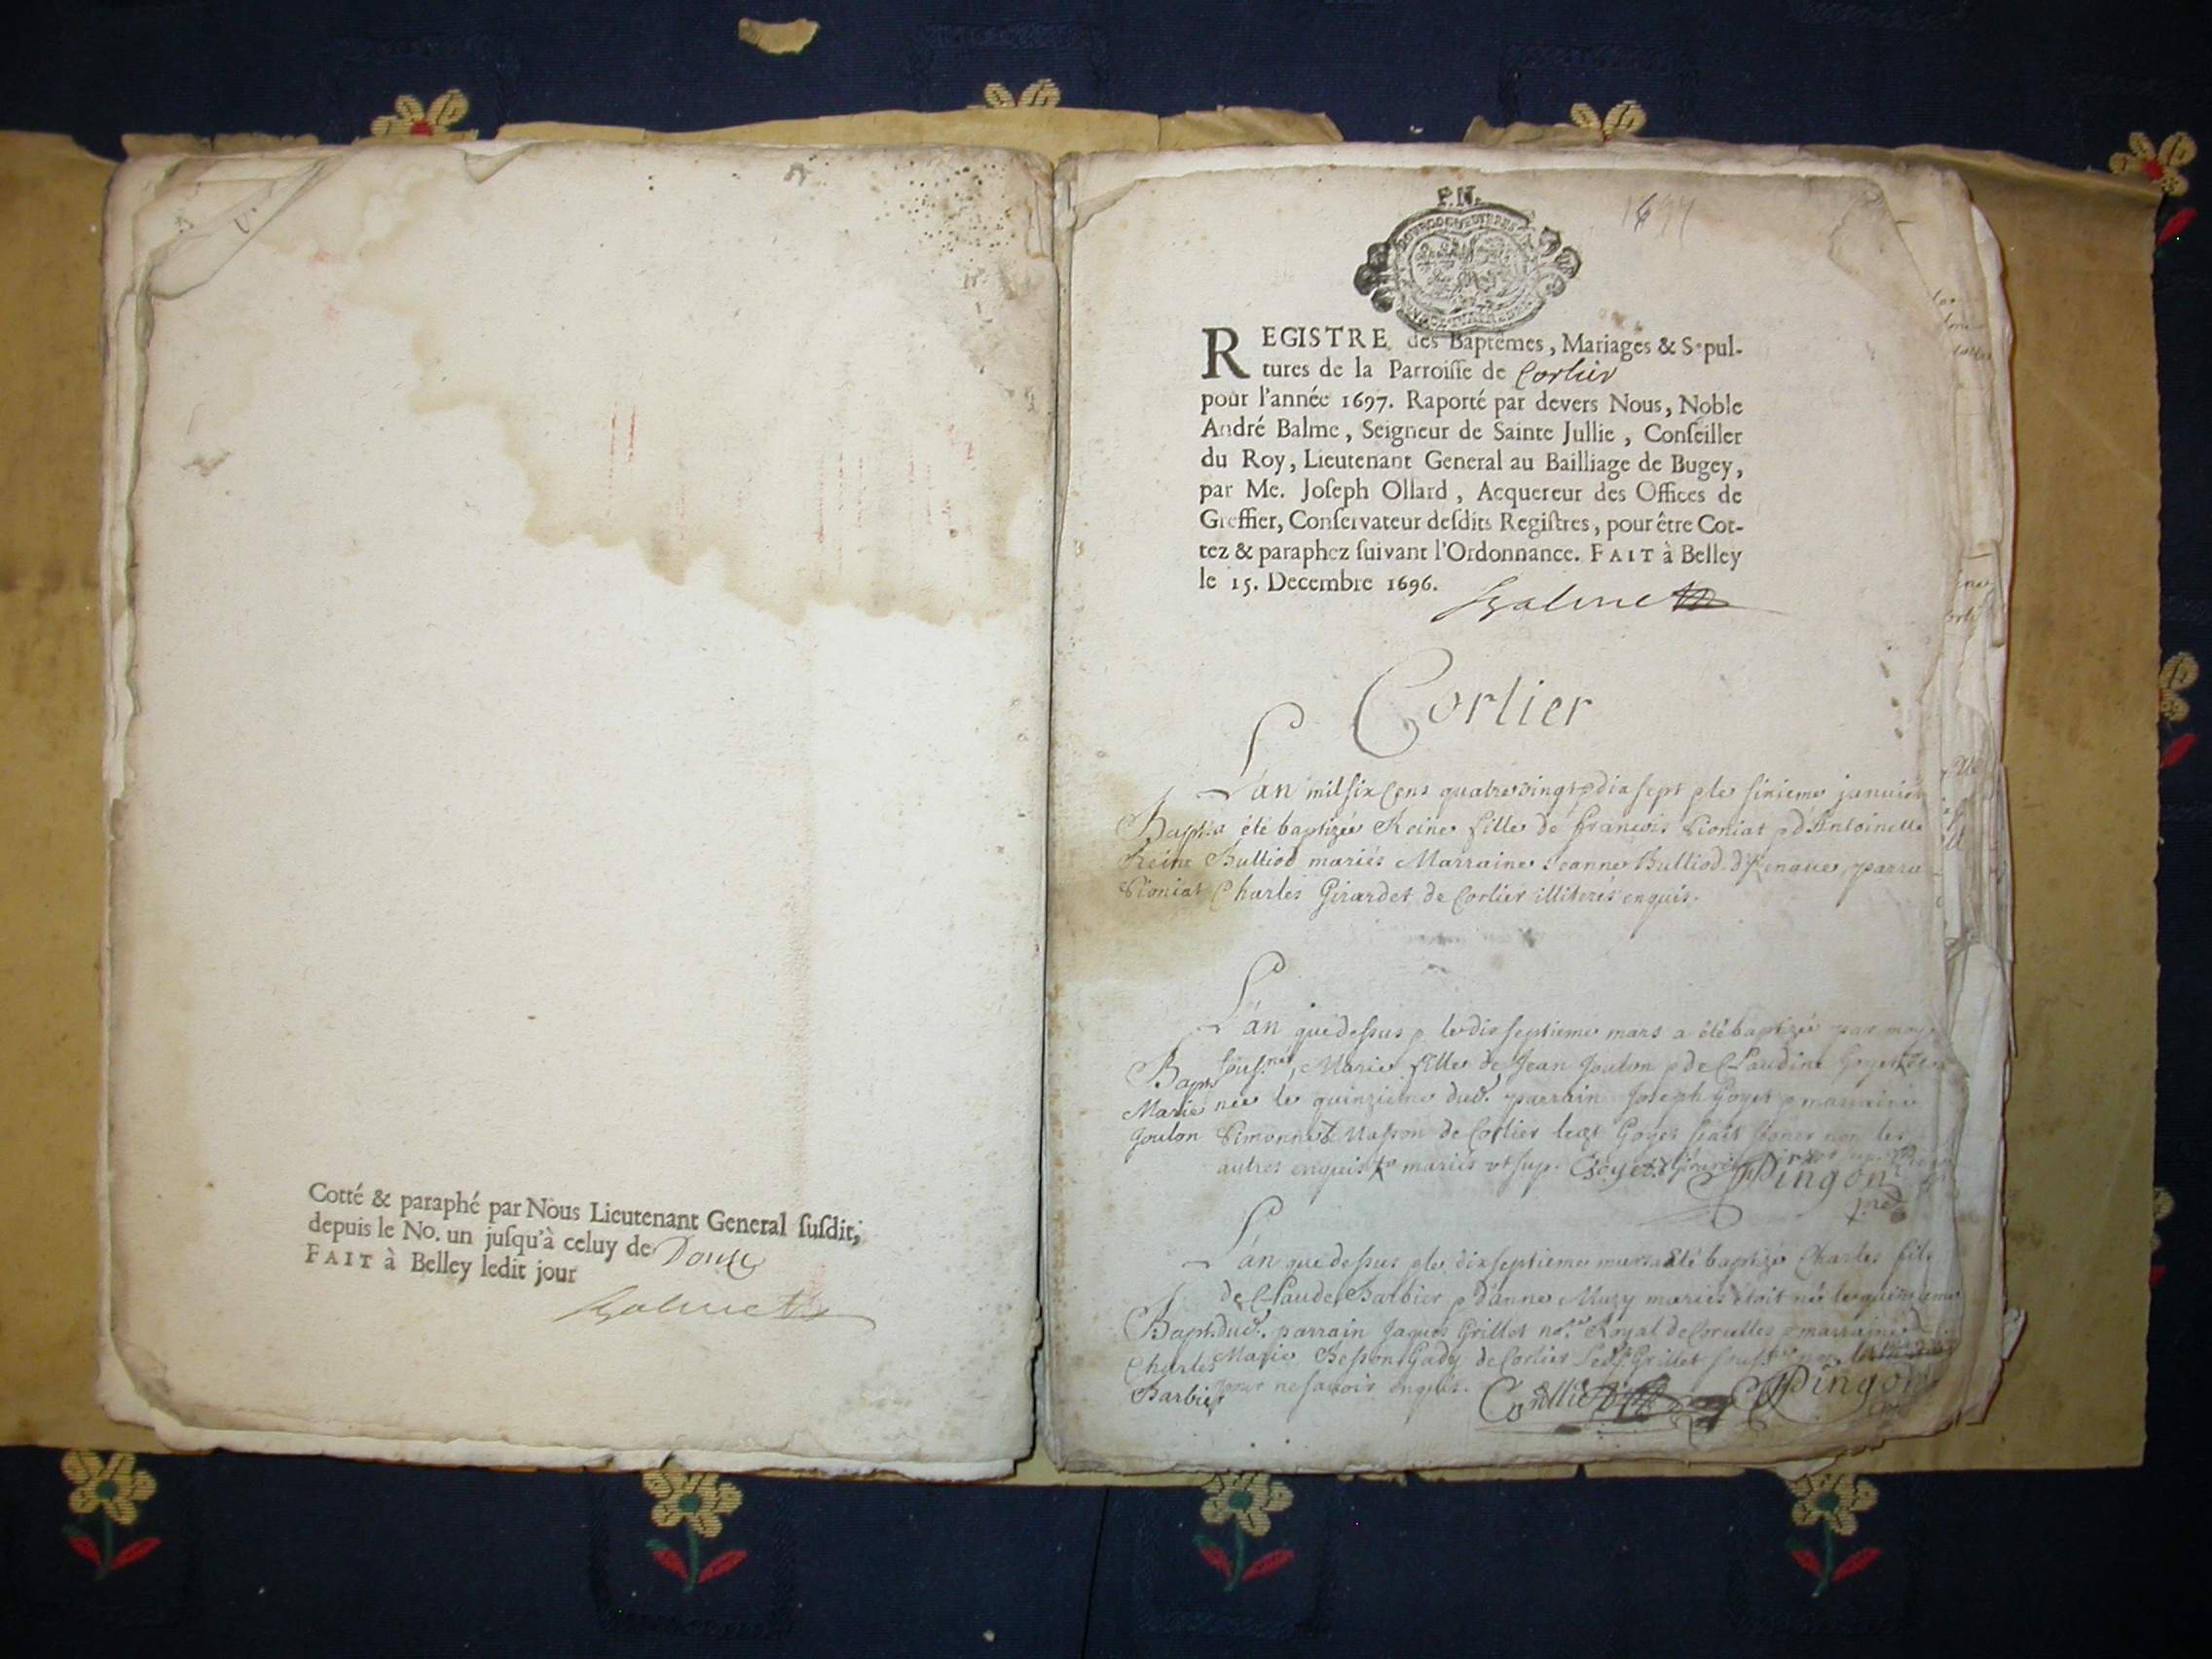 Cotté & paraphé par Nous Lieutenant General ſuſdit,
depuis le No. un juſqu'à celuy de Douze
FAIT à Belley ledit jour
Balme
P. N.
1697
REGISTRE des Baptêmes, Mariages & Sepul-
tures de la Parroiſſe de Corlier
pour l'année 1697. Raporté par devers Nous, Noble
André Balme, Seigneur de Sainte Jullie, Conſeiller
du Roy, Lieutenant General au Bailliage de Bugey,
par Me. Joſeph Ollard, Acquereur des Offices de
Greffier, Conſervateur deſdits Regiſtres, pour être Cot-
tez & paraphez ſuivant l'Ordonnance. FAIT à Belley
le 15. Decembre 1696.
Balme
Corlier
L'an mil six cens quatre vingt dix sept le sixieme janvier
Bapt. a été baptizée Reine fille de François Sioniat & d'Antoinette
Reine Bulliod mariés Marraine Jeanne Bulliod parra
Sioniat Charles Girardet de Corlier illiterés enquis.
L'an que dessus le dix septieme mars a été baptizée par moy
Bapt. Marie fille de Jean Goulon & de Claudine Goyet
Marie née le quinzieme dud. parrain Joseph Goyet & marraine
Goulon Masson de Corlier led. Goyet sçait signer non les
autres enquis mariés ut sup. Goyet Pingon
L'an que dessus & le dix septieme mars a été baptizé Charles fils
de Claude Barbier & d'anne Muzy mariés étoit né le quinzieme
Bapt. dud. parrain Jaques Grillet no.re Royal de Corcelles & marraine
Charles Marie Besson Gady de Corlier Led. Sr. Grillet
Barbier pour ne savoir enquis. Pingon